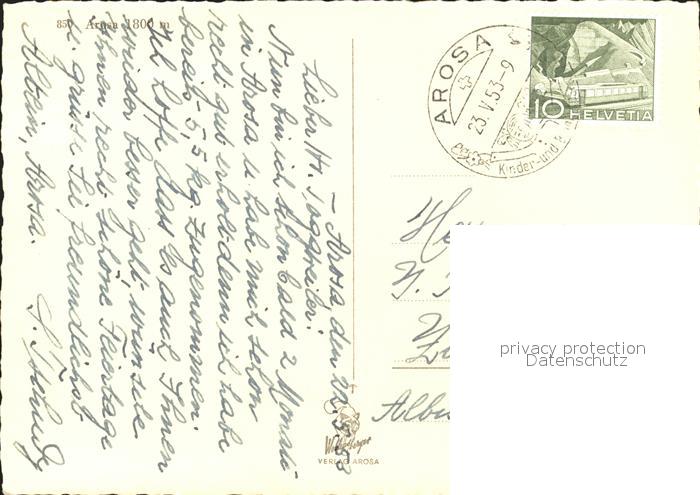 850 Arosa 1800 m
Arosa den 22.5.53
Lieber H. Toggweiler.
Nun bin ich schon bald 2 Monate
in Arosa u. habe mich schon
recht gut erholt denn ich habe
bereits 5,5 kg. zugenommen.
Ich hoffe dass es auch Ihnen
wieder besser geht, wünsche
Ihnen recht schöne Feiertage
u. grüsse Sie freundlichst
Altein, Arosa.
AROSA
23.V.53-9
Kinder- und
10 HELVETIA
VERLAG AROSA
privacy protection
Datenschutz